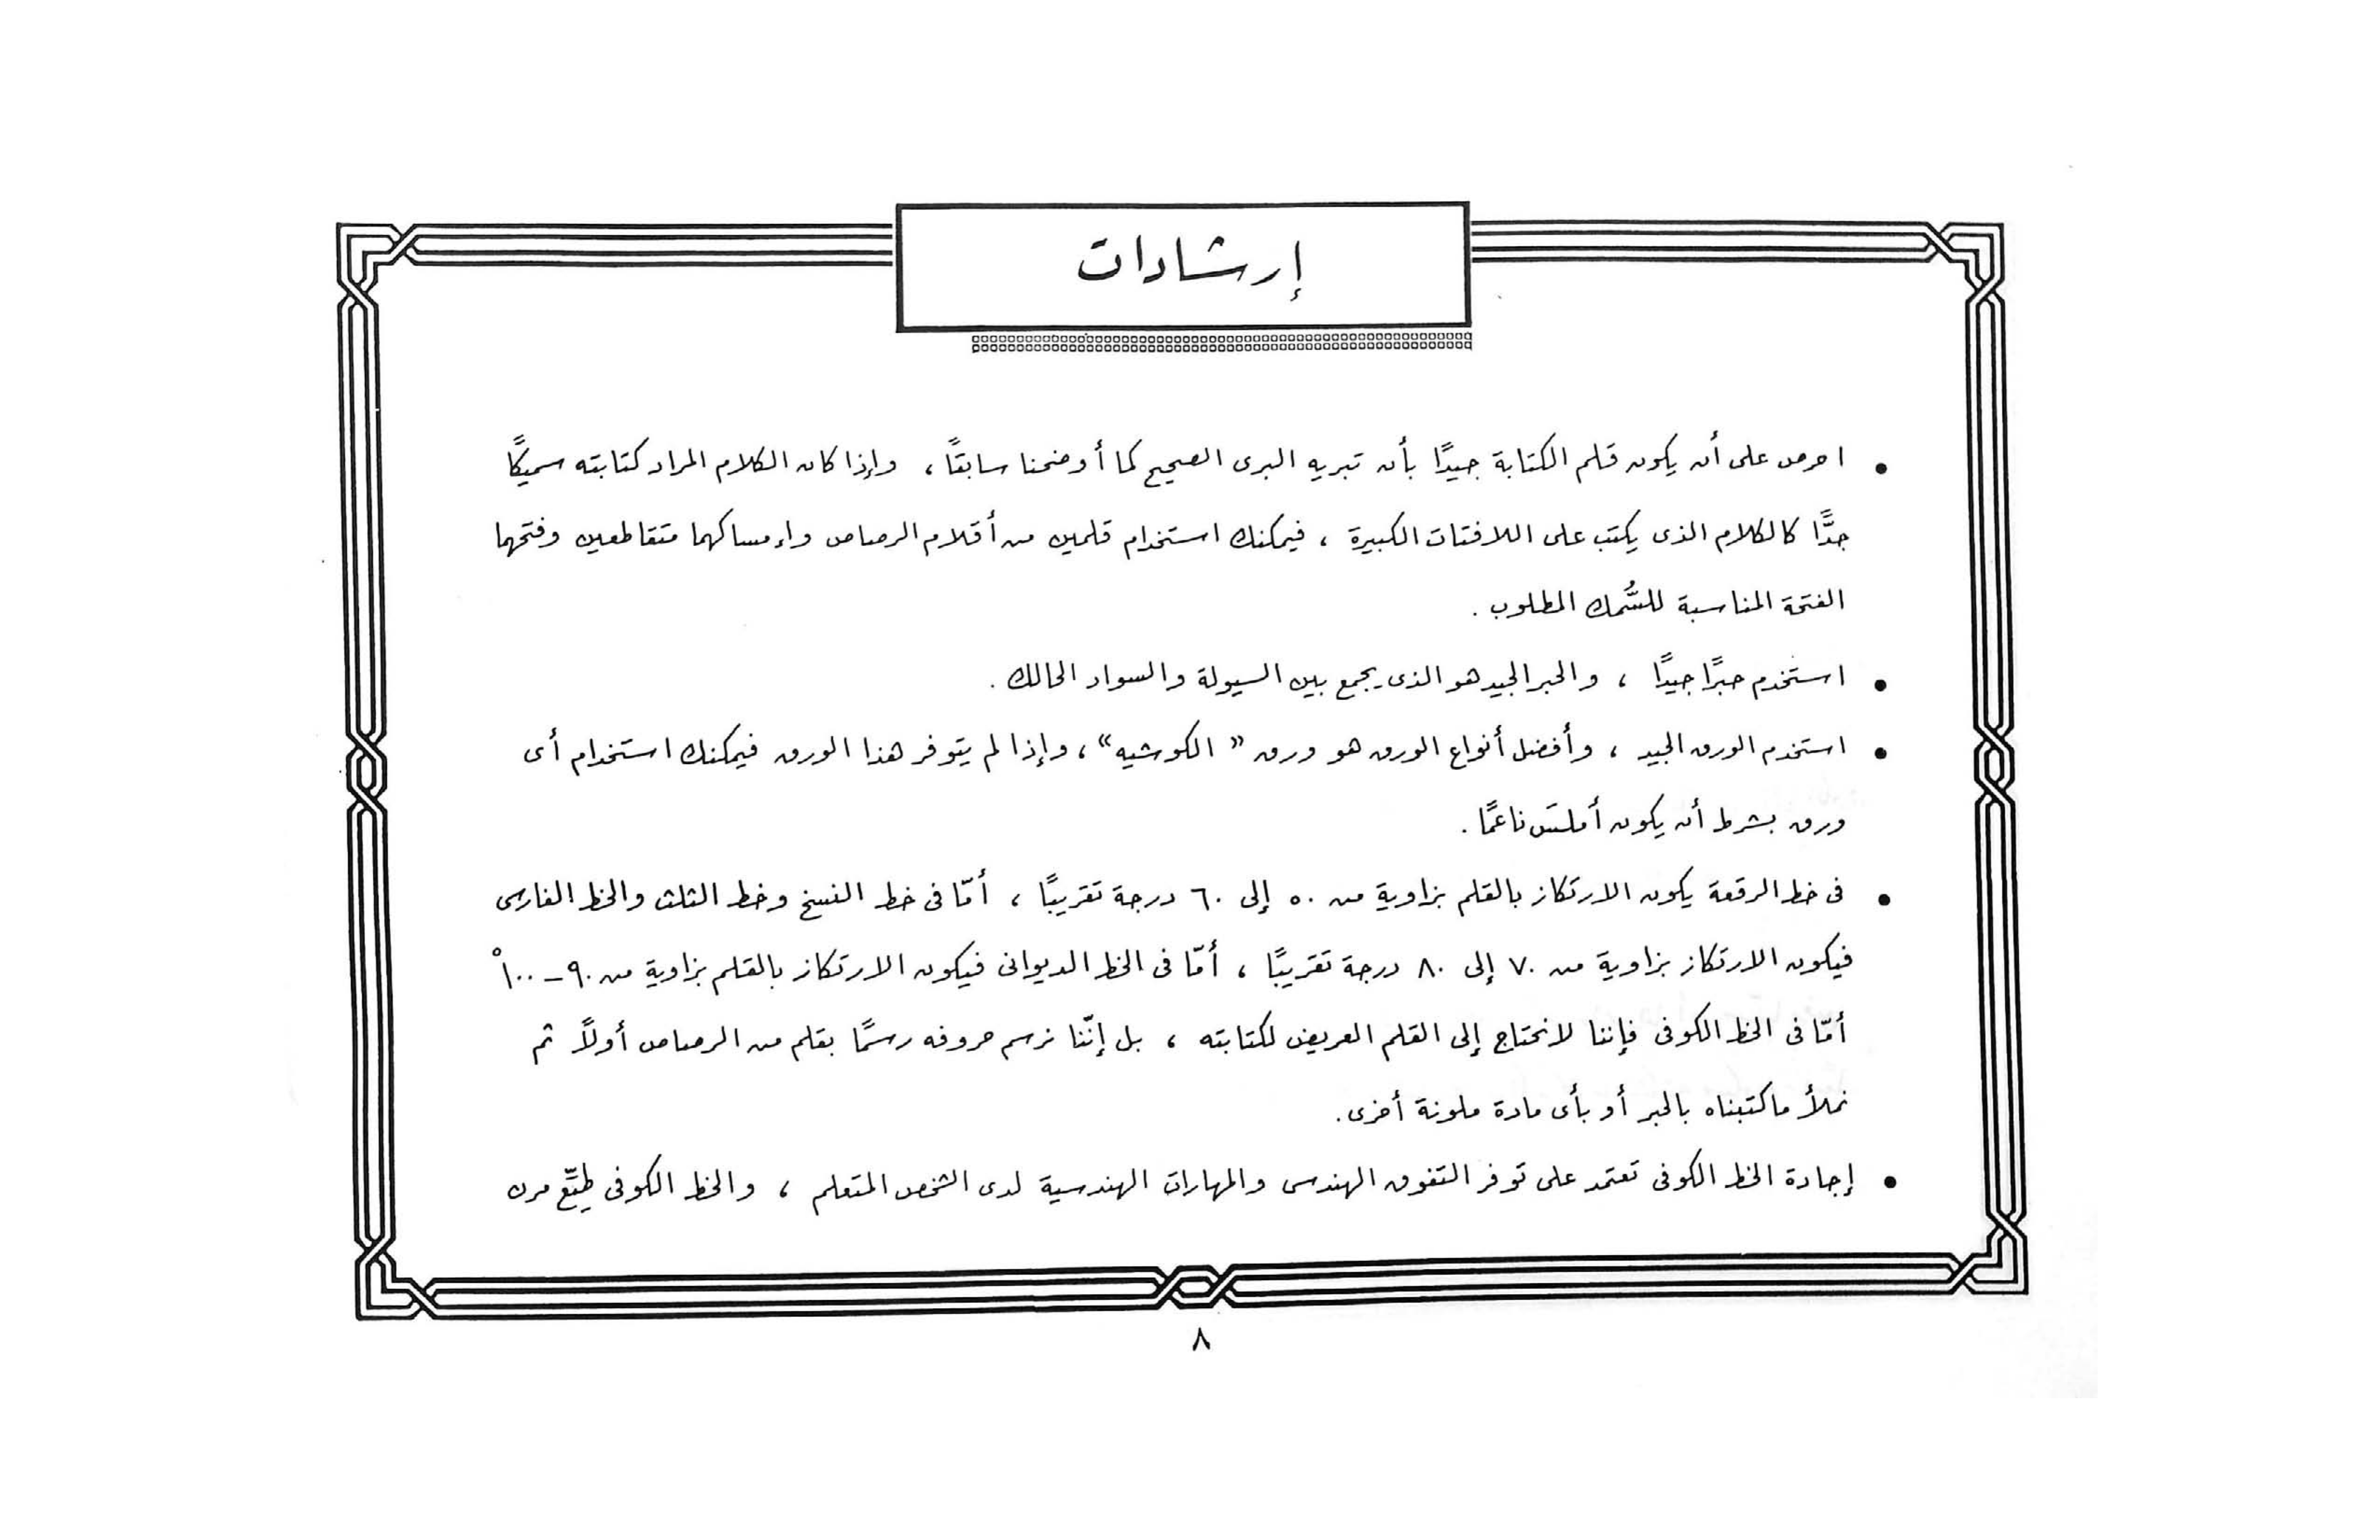 إرشادات
• احرص على أن يكون قلم الكتابة جيدًا بأن تبريه البرى الصحيح كما أوضحنا سابقًا ، وإذا كان الكلام المراد كتابته سميكًا
جدًّا كالكلام الذى يكتب على اللافتات الكبيرة ، فيمكنك استخدام قلمين من أقلام الرصاص وإمساكهما متقاطعين وفتحهما
الفتحة المناسبة للسُّمك المطلوب .
• استخدم حبرًا جيدًا ، والحبر الجيد هو الذى يجمع بين السيولة والسواد الحالك .
• استخدم الورق الجيد ، وأفضل أنواع الورق هو ورق « الكوشيه » ، وإذا لم يتوفر هذا الورق فيمكنك استخدام أى
ورق بشرط أن يكون أملسَ ناعمًا .
• فى خط الرقعة يكون الارتكاز بالقلم بزاوية من ٥٠ إلى ٦٠ درجة تقريبًا ، أمّا فى خط النسخ وخط الثلث والخط الفارسى
فيكون الارتكاز بزاوية من ٧٠ إلى ٨٠ درجة تقريبًا ، أمّا فى الخط الديوانى فيكون الارتكاز بالقلم بزاوية من ٩٠ – ١٠٠°
أمّا فى الخط الكوفى فإننا لا نحتاج إلى القلم العريض لكتابته ، بل إنّنا نرسم حروفه رسمًا بقلم من الرصاص أولاً ثم
نملأ ما كتبناه بالحبر أو بأى مادة ملونة أخرى .
• إجادة الخط الكوفى تعتمد على توفر التفوق الهندسى والمهارات الهندسية لدى الشخص المتعلم ، والخط الكوفى طيّع مرن
٨